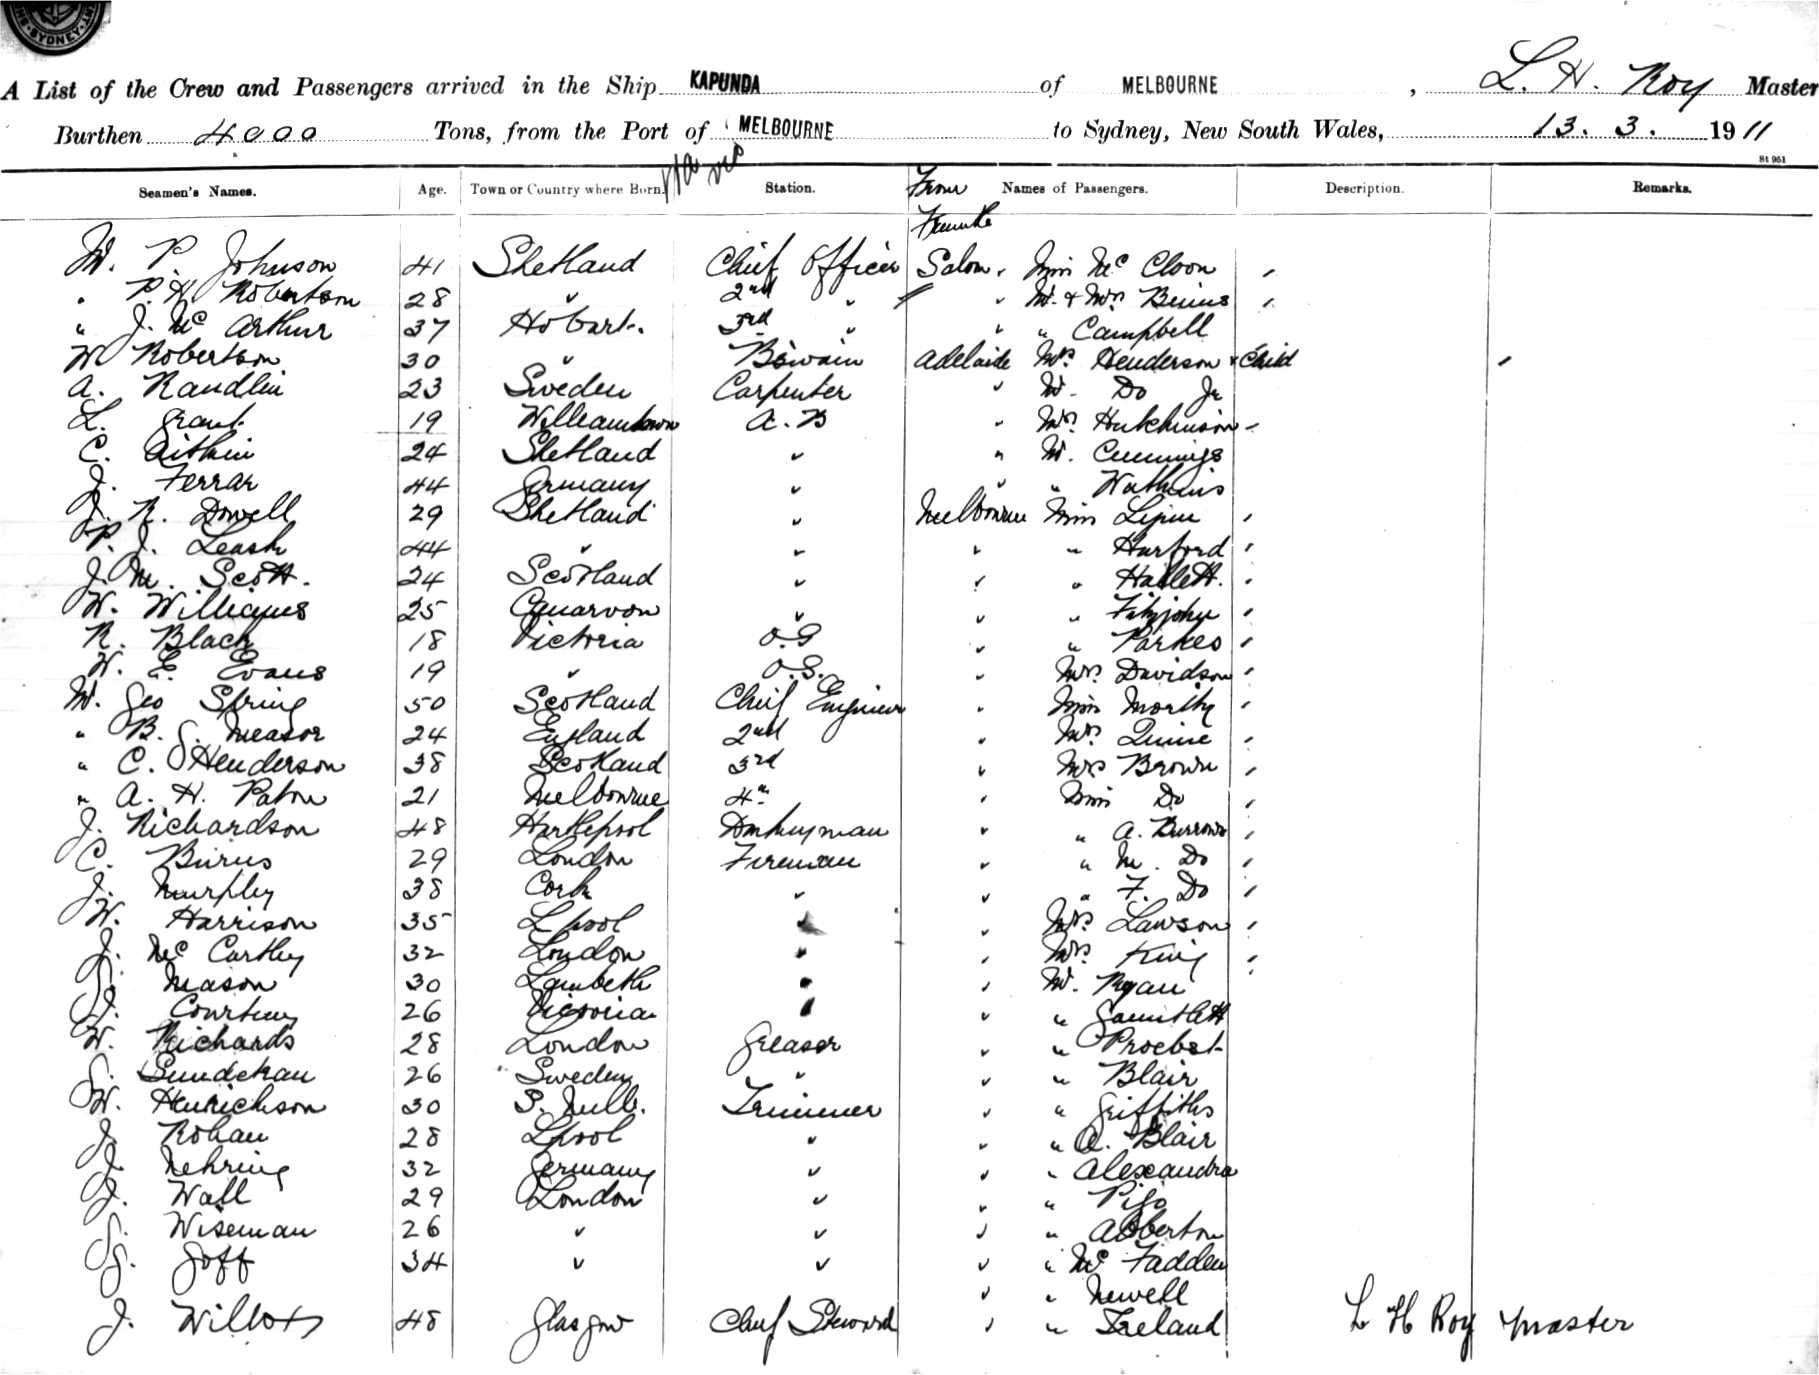 SYDNEY
A List of the Crew and Passengers arrived in the Ship KAPUNDA of MELBOURNE, L. H. Roy Master
Burthen 4000 Tons, from the Port of MELBOURNE to Sydney, New South Wales, 13. 3. 1911
St 961
Seamen's Names. Age. Town or Country where Born. Station. From Names of Passengers. Description. Remarks.
Fremantle
M. P. Johnson 41 Shetland Chief Officer Saloon Miss Mc Cloon
" P. H. Robertson 28 " 2nd " " Mr. & Mrs Binns
" J. Mc Arthur 37 Hobart. 3rd " " " Campbell
W Robertson 30 " B'swain Adelaide Mrs Henderson & Child
A. Randlin 23 Sweden Carpenter " Mr. Do Jr
L. Grant 19 Williamstown A. B " Mrs Hutchinson
C. Aitkin 24 Shetland " " Mr. Cummings
J. Ferrar 44 Germany " " " Watkins
J. R. Dowell 29 Shetland " Melbourne Miss
P. J. Leask 44 " " " " Harford
J. M. Scott. 24 Scotland " " " Hallett.
W. Williams 25 Cnarvon " " " Fitzjohn
R. Black 18 Victoria O.S " " Parkes
W. E. Evans 19 " O.S. " Mrs. Davidson
Mr. Geo Spring 50 Scotland Chief Engineer " Miss Morthy
" B. J. Measor 24 England 2nd " Mrs. Quine
" C. J Henderson 38 Scotland 3rd " Mrs Brown
" A. H. Paton 21 Melbourne 4th " Miss Do
J. Richardson 48 Hartlepool Donkeyman " " A. Burrows
C. Burns 29 London Fireman " " M. Do
J. Murphy 38 Cork " " " F. Do
W. Harrison 35 Lpool " " Mrs. Lawson
J. Mc Carthy 32 London " " Mrs. King
J. Mason 30 Lambeth " " Mr. Ryan
J. Courtney 26 Victoria " " " Gauntlett
W. Richards 28 London Greaser " " Proebst
G. 26 Sweden " " " Blair
W. Henrickson 30 S. Melb. Trimmer " " Griffiths
J. Rohan 28 Lpool " " " A. Blair
J. Nehring 32 Germany " " " Alexandra
J. Wall 29 London " " "
G. Wiseman 26 " " " " Abberton
G. Goff 34 " " " " Mc Fadden
" " Newell
J. Willox 48 Glasgow Chief Steward " " Ireland
L H Roy Master